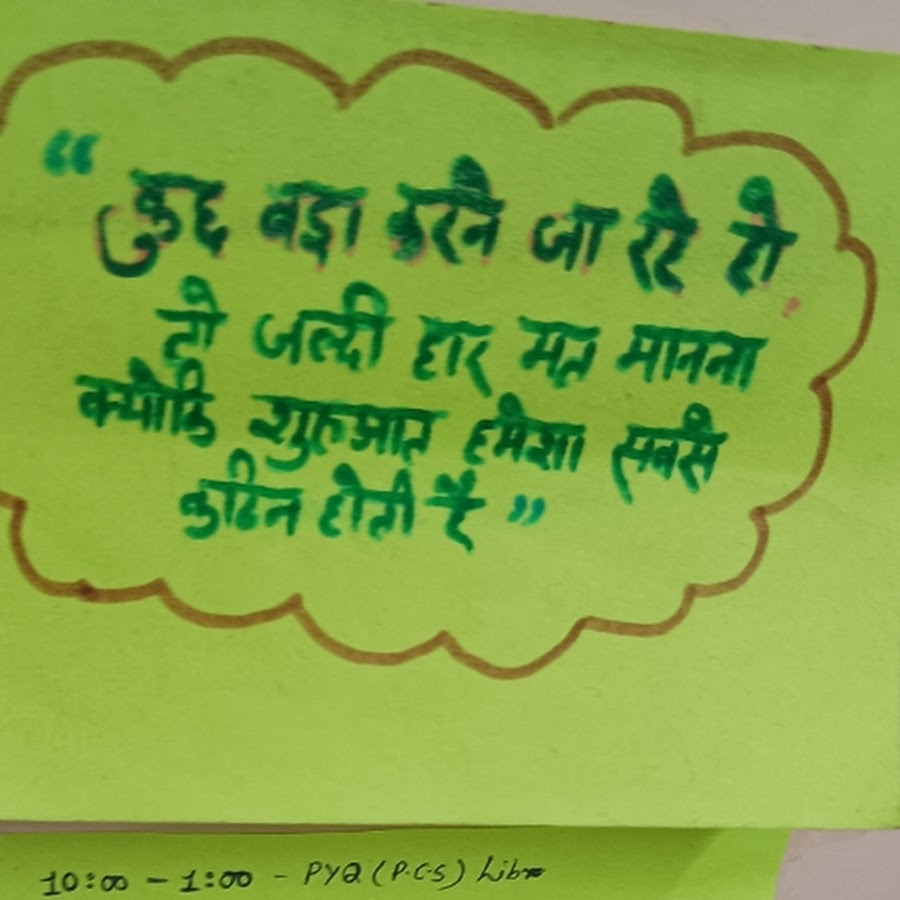 “ कुछ बड़ा करने जा रहे हो
तो जल्दी हार मत मानना
क्योंकि शुरुआत हमेशा सबसे
कठिन होती है ”
10:00 - 1:00 - PYQ (P.C.S)